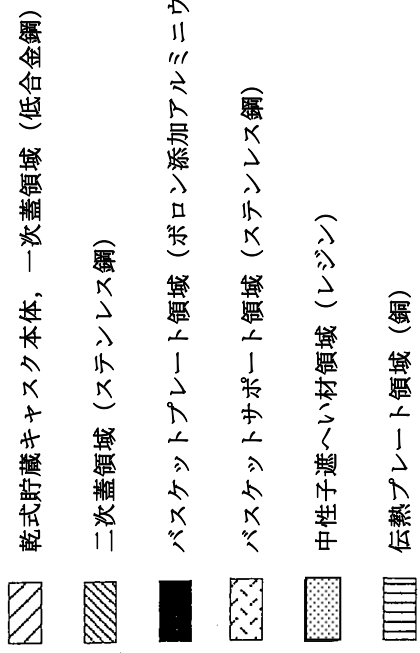 乾式貯蔵キャスク本体，一次蓋領域（低合金鋼）
二次蓋領域（ステンレス鋼）
バスケットプレート領域（ボロン添加アルミニウ
バスケットサポート領域（ステンレス鋼）
中性子遮へい材領域（レジン）
伝熱プレート領域（銅）